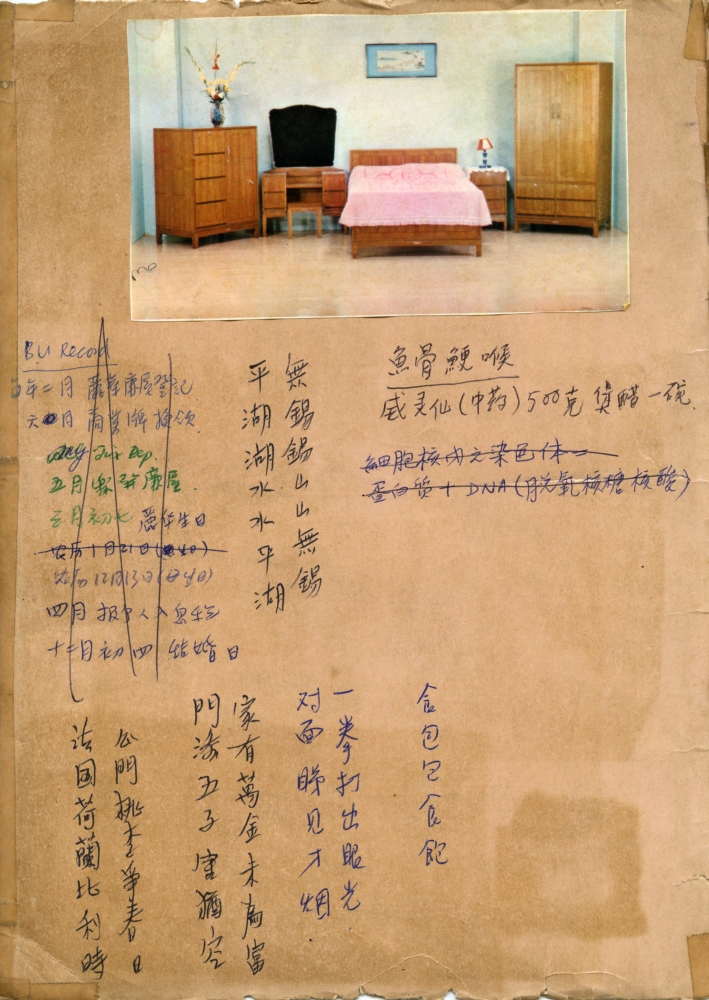 B.U Record
每年二月 蘑菇廠屋登記
六月 商業牌換領
五月 廠屋
三月初七 生日
农历1月21日(生日)
农历12月13日(生日)
四月 报个人入息
十二月初四 结婚日
無錫錫山山無錫
平湖湖水水平湖
魚骨鯁喉
威灵仙(中药)500克 煲醋一碗
細胞核内之染色体=
蛋白質+DNA(脱氧核糖核酸)
食包包食飽
一拳打出眼光
对面睇見才烟
家有萬金未為富
門添五子室猶空
公門桃李爭春日
法国荷蘭比利時